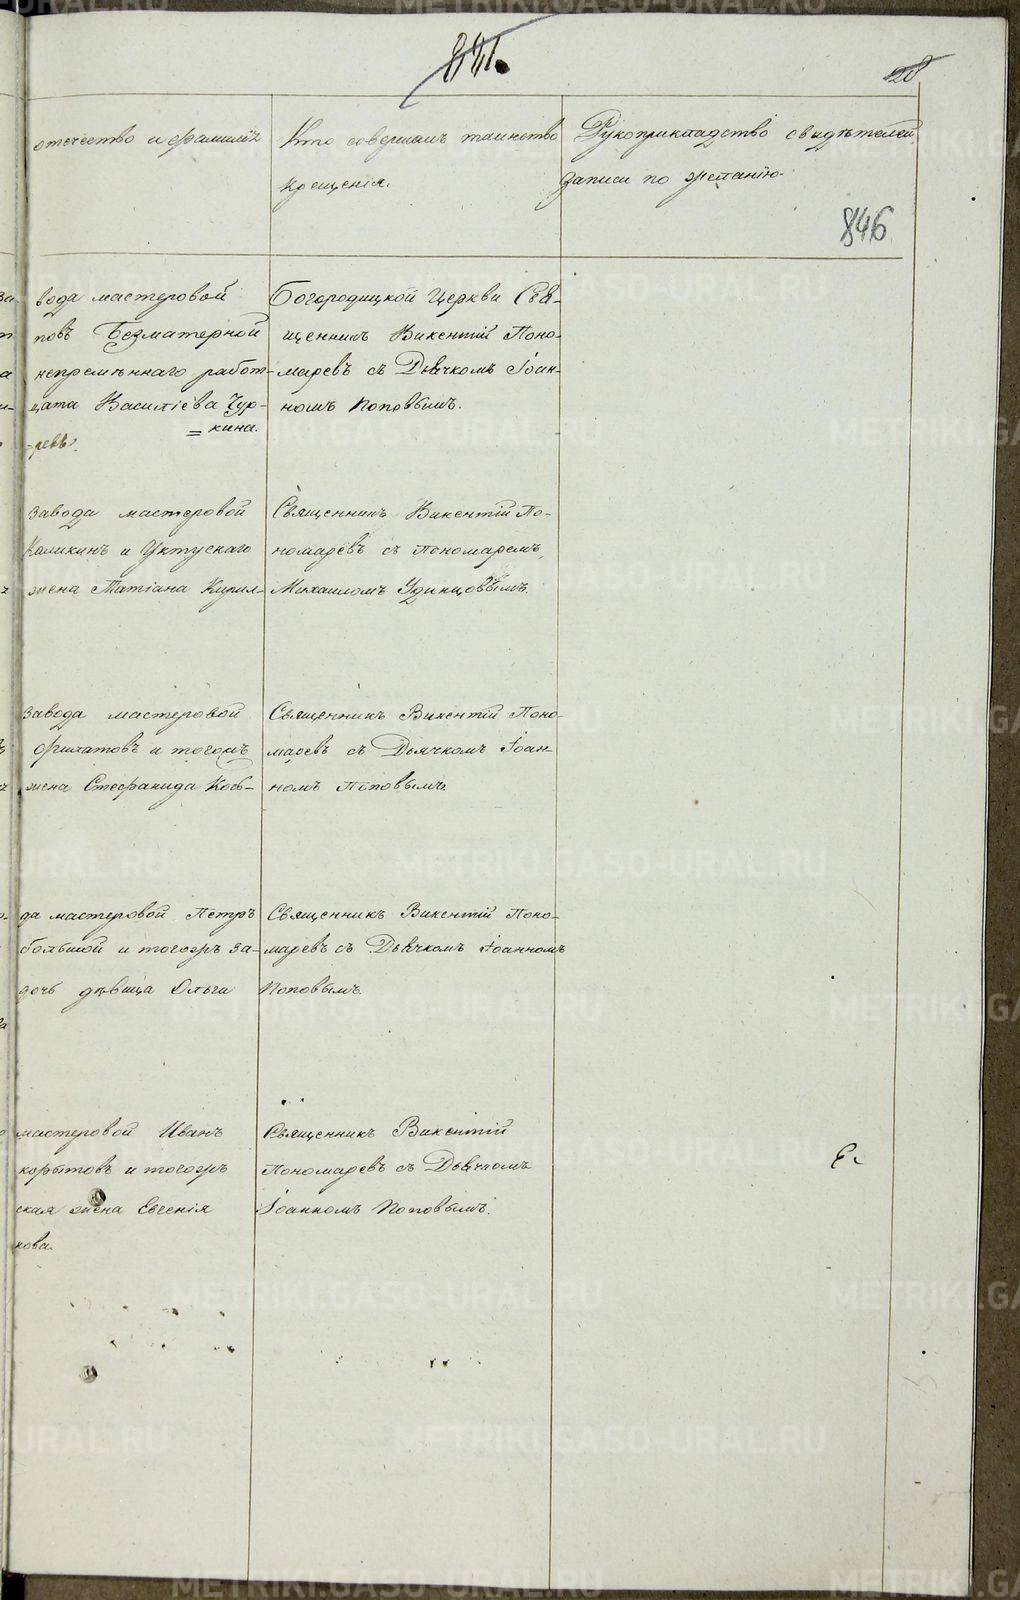 841.
28
отечество и фамилія
Кто совершалъ таинство
крещенія.
Рукоприкладство свидѣтелей
записи по желанію.
846
вода мастеровой
повъ Безматерной
непремѣннаго работ-
цата Василіева Чур-
= кина.
Богородицкой Церкви Свя-
щенникъ Викентій Поно-
маревъ съ Дьячкомъ Іоан-
номъ Поповымъ.
завода мастеровой
Каликинъ и Уктускаго
жена Татіана Кирил-
Священникъ Викентій По-
номаревъ съ Пономаремъ
Михаиломъ Удинцовымъ.
завода мастеровой
филатовъ и тогожъ
жена Стефанида Козь-
Священникъ Викентій Поно-
маревъ съ Дьячкомъ Іоан-
номъ Поповымъ.
да мастеровой Петръ
большой и тогожъ за-
дочь дѣвица Ольга
Священникъ Викентій Поно-
маревъ съ Дьячкомъ Іоанномъ
Поповымъ
мастеровой Иванъ
корытовъ и тогожъ
ская жена Евгенія
кова.
Священникъ Викентій
Пономаревъ съ Дьячкомъ
Іоанномъ Поповымъ.
METRIKI.GASO-URAL.RU